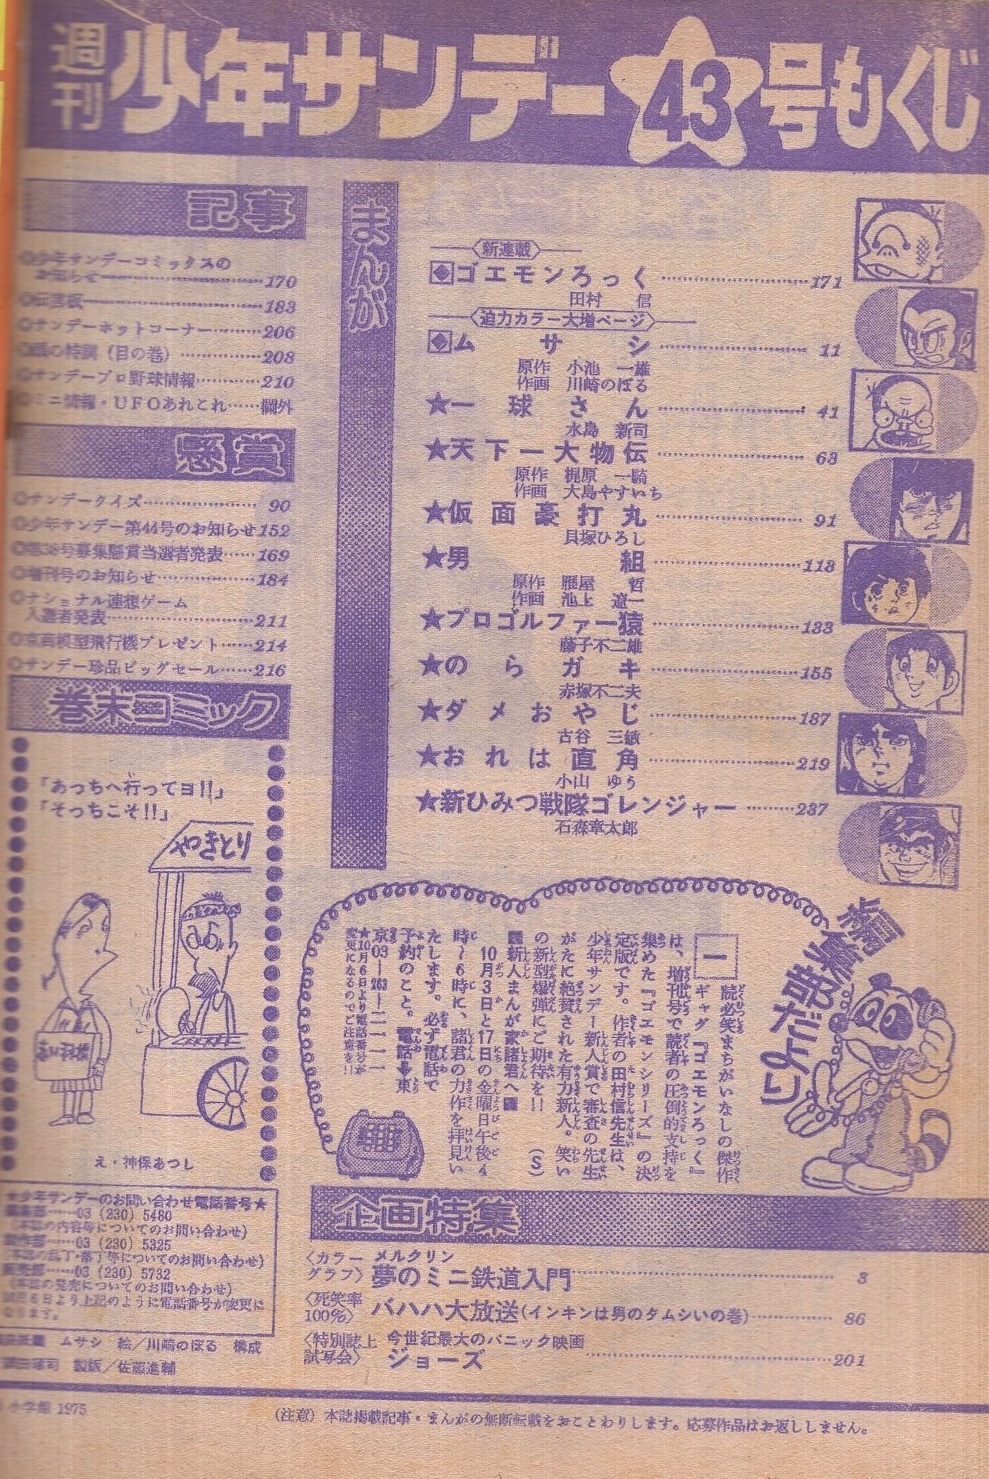 週刊少年サンデー43号もくじ
まんが
〈新連載〉
ゴエモンろっく……171
田村 信
〈迫力カラー大増ページ〉
ムサシ……11
原作 小池 一雄
作画 川崎のぼる
★一球さん……41
水島 新司
★天下一大物伝……63
原作 梶原 一騎
作画 大島やすいち
★仮面豪打丸……91
貝塚ひろし
★男組……113
原作 雁屋 哲
作画 池上 遼一
★プロゴルファー猿……133
藤子不二雄
★のらガキ……155
赤塚不二夫
★ダメおやじ……187
古谷 三敏
★おれは直角……219
小山 ゆう
★新ひみつ戦隊ゴレンジャー……237
石森章太郎
記事
◎少年サンデーコミックスの
お知らせ……170
◎伝言板……183
◎サンデーホットコーナー……206
の特訓(目の巻)……208
◎サンデープロ野球情報……210
◎ミニ情報・UFOあれこれ……欄外
懸賞
◎サンデークイズ……90
◎少年サンデー第44号のお知らせ152
◎第38号募集懸賞当選者発表……169
◎増刊号のお知らせ……184
◎ナショナル連想ゲーム
入選者発表……211
◎京商模型飛行機プレゼント……214
◎サンデー珍品ビッグセール……216
巻末コミック
「あっちへ行ってヨ!!」
「そっちこそ!!」
やきとり
え・神保あつし
編集部だより
一読必笑まちがいなしの傑作
ギャグ『ゴエモンろっく』
は、増刊号で読者の圧倒的支持を
集めた『ゴエモンシリーズ』の決
定版です。作者の田村信先生は、
少年サンデー新人賞で審査の先生
がたに絶賛された有力新人。笑い
の新型爆弾にご期待を!! (S)
新人まんが家諸君へ
10月3日と17日の金曜日午後4
時〜6時に、諸君の力作を拝見い
たします。必ず電話で
予約のこと。電話➡東
京03-263-二一一一
★10月6日より電話番号が
変更になるのでご注意を!!
★少年サンデーのお問い合わせ電話番号★
編集部……03(230)5480
(本誌の内容等についてのお問い合わせ)
製作部……03(230)5325
(本誌の乱丁・落丁等についてのお問い合わせ)
販売部……03(230)5732
(本誌の発売についてのお問い合わせ)
10月6日より上記のように電話番号が変更に
なります。
ムサシ 絵/川崎のぼる 構成
製版/佐藤進輔
企画特集
〈カラーグラフ〉
メルクリン
夢のミニ鉄道入門……3
〈死笑率100%〉
バハハ大放送(インキンは男のタムシいの巻)……86
〈特別誌上試写会〉
今世紀最大のパニック映画
ジョーズ……201
小学館 1975
(注意)本誌掲載記事・まんがの無断転載をおことわりします。応募作品はお返ししません。